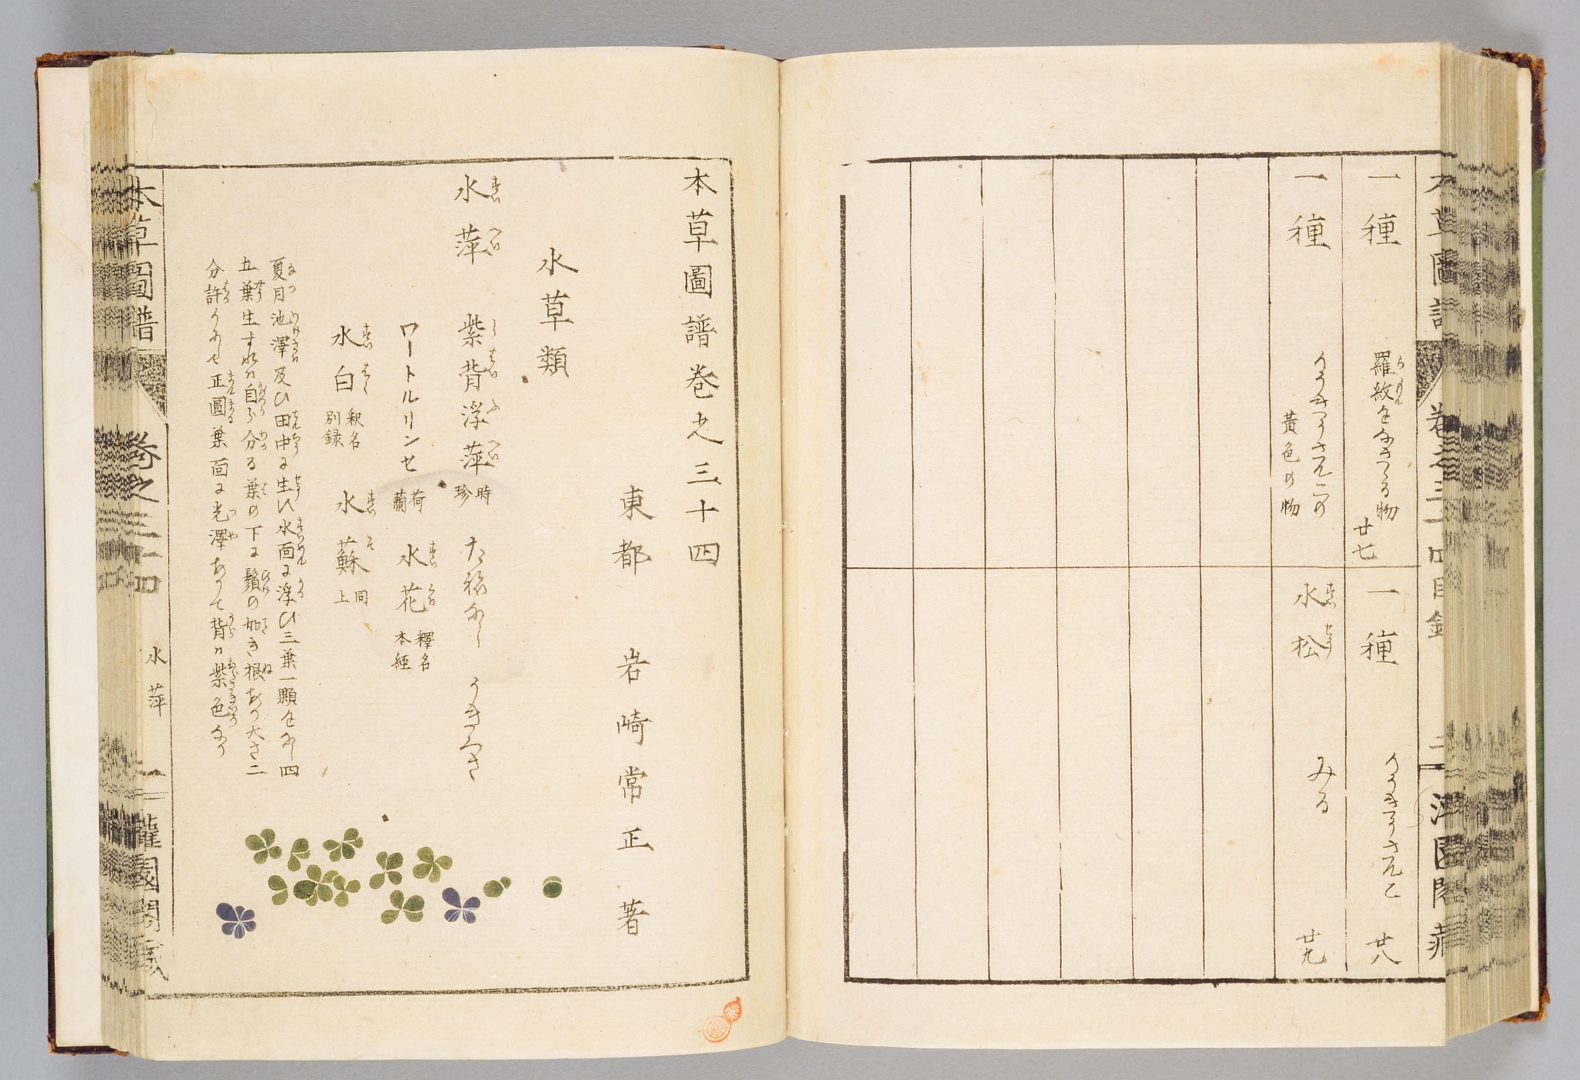 一種
羅紋をなしたる物
廿七
一種
廿八
一種
黃色の物
水松
みる
廿九
本草圖譜卷之三十四
東都 岩崎常正著
水草類
水萍 紫背浮萍 時珍
ワートルリンセ 荷蘭 水花 釋名 本經
水白 釈名 別録 水蘇 同上
夏月池澤及ひ田中に生し水面に浮ひ三葉一顆をなし四
五葉生すれは自ら分る葉の下に鬚の如き根あり大さ二
分許りにして正圓葉面に光澤ありて背は紫色なり
本草圖譜
卷之三十四
水萍
一